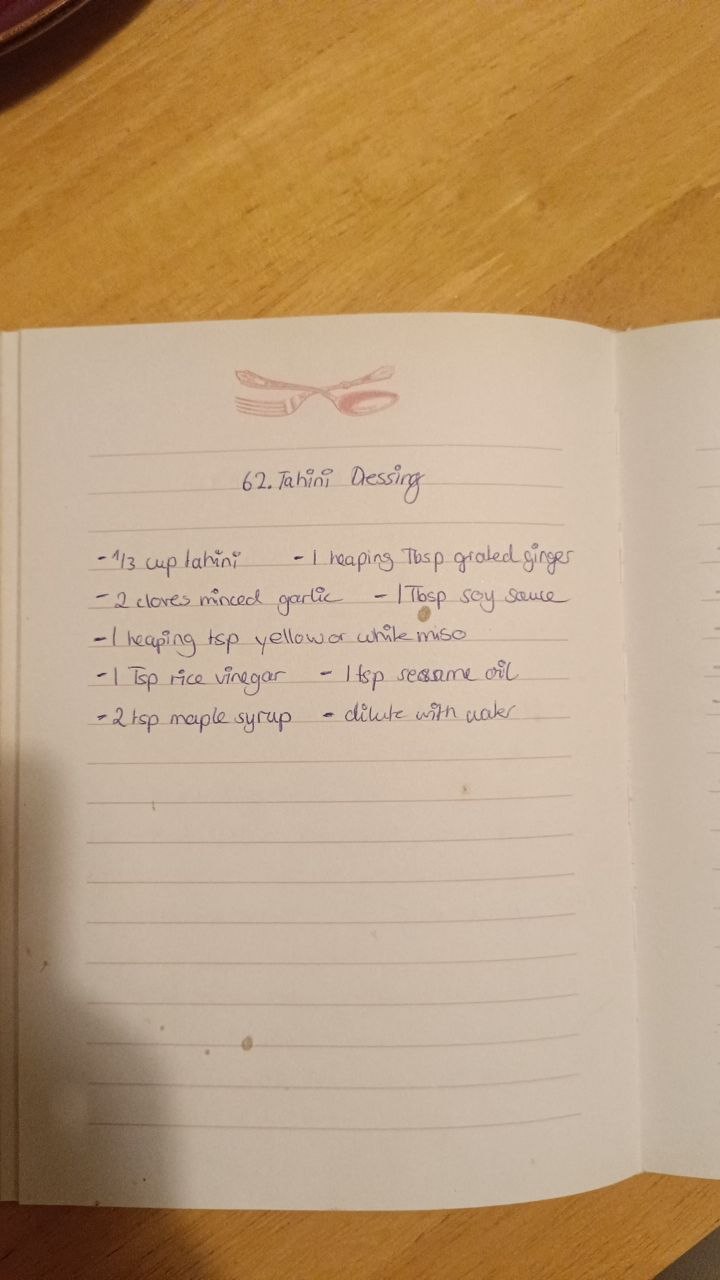 62. Tahini Dessing
- 1/3 cup tahini - 1 heaping Tbsp grated ginger
- 2 cloves minced garlic - 1 Tbsp soy sauce
- 1 heaping tsp yellow or white miso
- 1 Tsp rice vinegar - 1 tsp sesame oil
- 2 tsp maple syrup - dilute with water